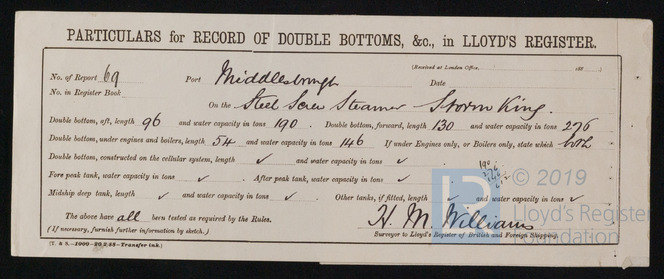 PARTICULARS for RECORD OF DOUBLE BOTTOMS, &c., in LLOYD'S REGISTER.
(Received at London Office, 188
No. of Report 69 Port Middlesbrough Date
No. in Register Book
On the Steel Screw Steamer Storm King.
Double bottom, aft, length 96 and water capacity in tons 190. Double bottom, forward, length 130 and water capacity in tons 276
Double bottom, under engines and boilers, length 54 and water capacity in tons 146 If under Engines only, or Boilers only, state which both
Double bottom, constructed on the cellular system, length ✓ and water capacity in tons ✓
Fore peak tank, water capacity in tons ✓ After peak tank, water capacity in tons ✓
190
276
Midship deep tank, length ✓ and water capacity in tons ✓ Other tanks, if fitted, length ✓ and water capacity in tons ✓
The above have all been tested as required by the Rules.
H. M. Williams
(If necessary, furnish further information by sketch.) Surveyor to Lloyd's Register of British and Foreign Shipping.
Transfer ink.)
© 2019
Lloyd's Register
Foundation